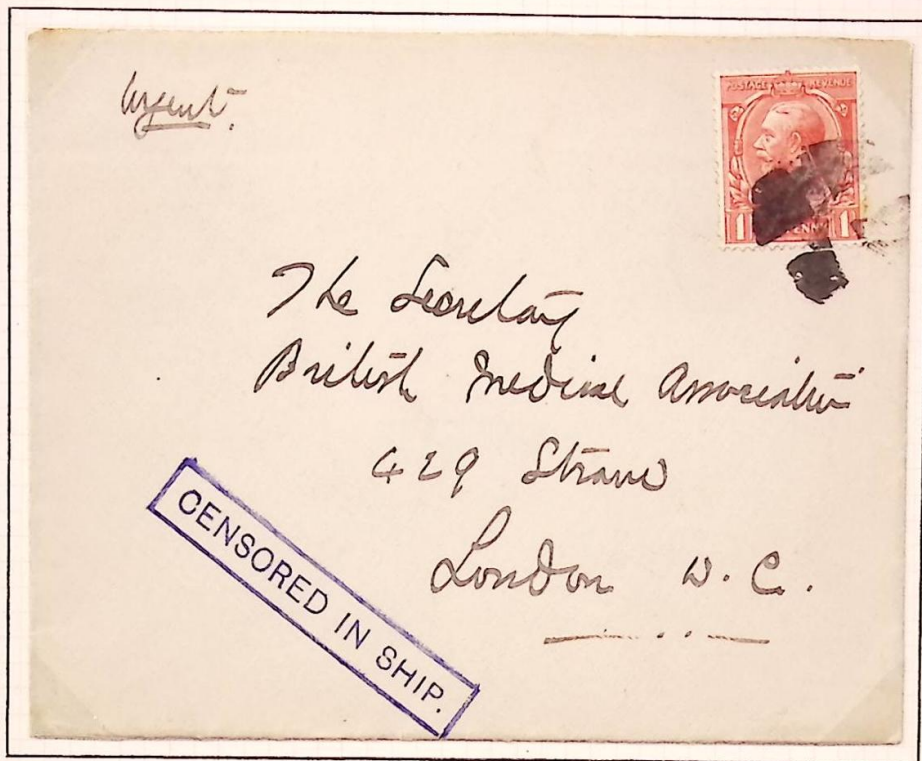 Urgent.
POSTAGE REVENUE
1 1
The Secretary
British Medical Association
429 Strand
London W.C.
CENSORED IN SHIP.